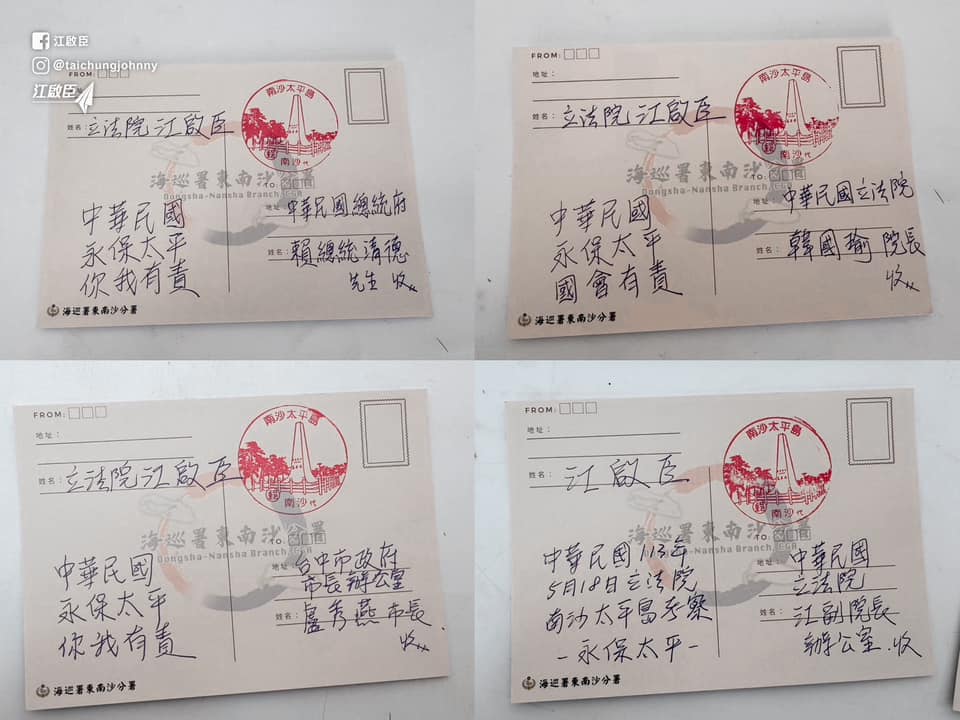 江啟臣
@taichungjohnny
江啟臣
FROM:
地址：
姓名：立法院江啟臣
南沙太平島
郵
南沙 代
海巡署東南沙分署
Dongsha-Nansha Branch, CGA
TO:
中華民國
永保太平
你我有責
地址：中華民國總統府
姓名：賴總統清德
先生 收
海巡署東南沙分署
FROM:
地址：
姓名：立法院江啟臣
南沙太平島
郵
南沙 代
海巡署東南沙分署
Dongsha-Nansha Branch, CGA
TO:
中華民國
永保太平
國會有責
地址：中華民國立法院
姓名：韓國瑜 院長
收
海巡署東南沙分署
FROM:
地址：
姓名：立法院江啟臣
南沙太平島
郵
南沙 代
海巡署東南沙分署
Dongsha-Nansha Branch, CGA
TO:
中華民國
永保太平
你我有責
地址：台中市政府
市長辦公室
姓名：盧秀燕市長
收
海巡署東南沙分署
FROM:
地址：
姓名：江啟臣
南沙太平島
郵
南沙 代
海巡署東南沙分署
Dongsha-Nansha Branch, CGA
TO:
中華民國113年
5月18日立法院
南沙太平島考察
-永保太平-
地址：中華民國
立法院
姓名：江副院長
辦公室 收
海巡署東南沙分署